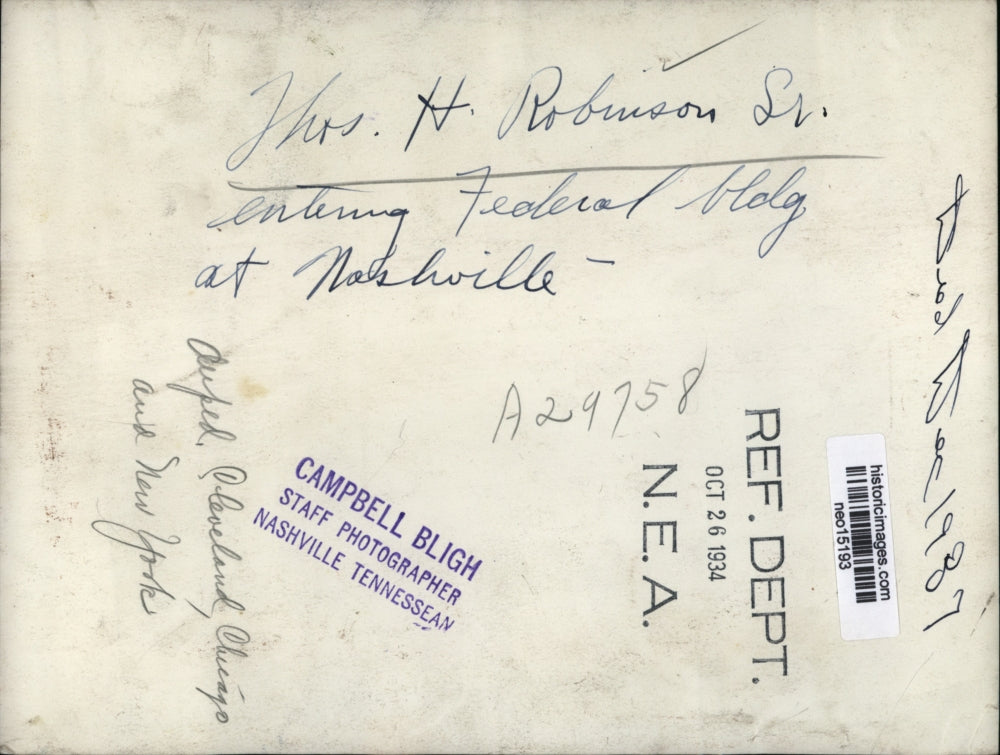 Thos. H. Robinson Sr.
entering Federal bldg
at Nashville –
duped, Cleveland, Chicago
and New York
A29758
CAMPBELL BLIGH
STAFF PHOTOGRAPHER
NASHVILLE TENNESSEAN
REF. DEPT.
OCT 26 1934
N.E.A.
historicimages.com
neo15193